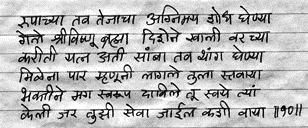 रुपाच्या तव तेजाचा अग्निमय शोध घेण्या
गेले श्रीविष्णू ब्रह्मा दिशेने खाली वर च्या
करीती यत्न अती सांबा तव थांग घेण्या
मिळेना पार म्हणूनी लागले तुला स्तवाया
भक्तीने मग स्वरूप दाविले तू स्वये त्यां
केली जर तुझी सेवा जाईल कशी वाया ॥१०॥